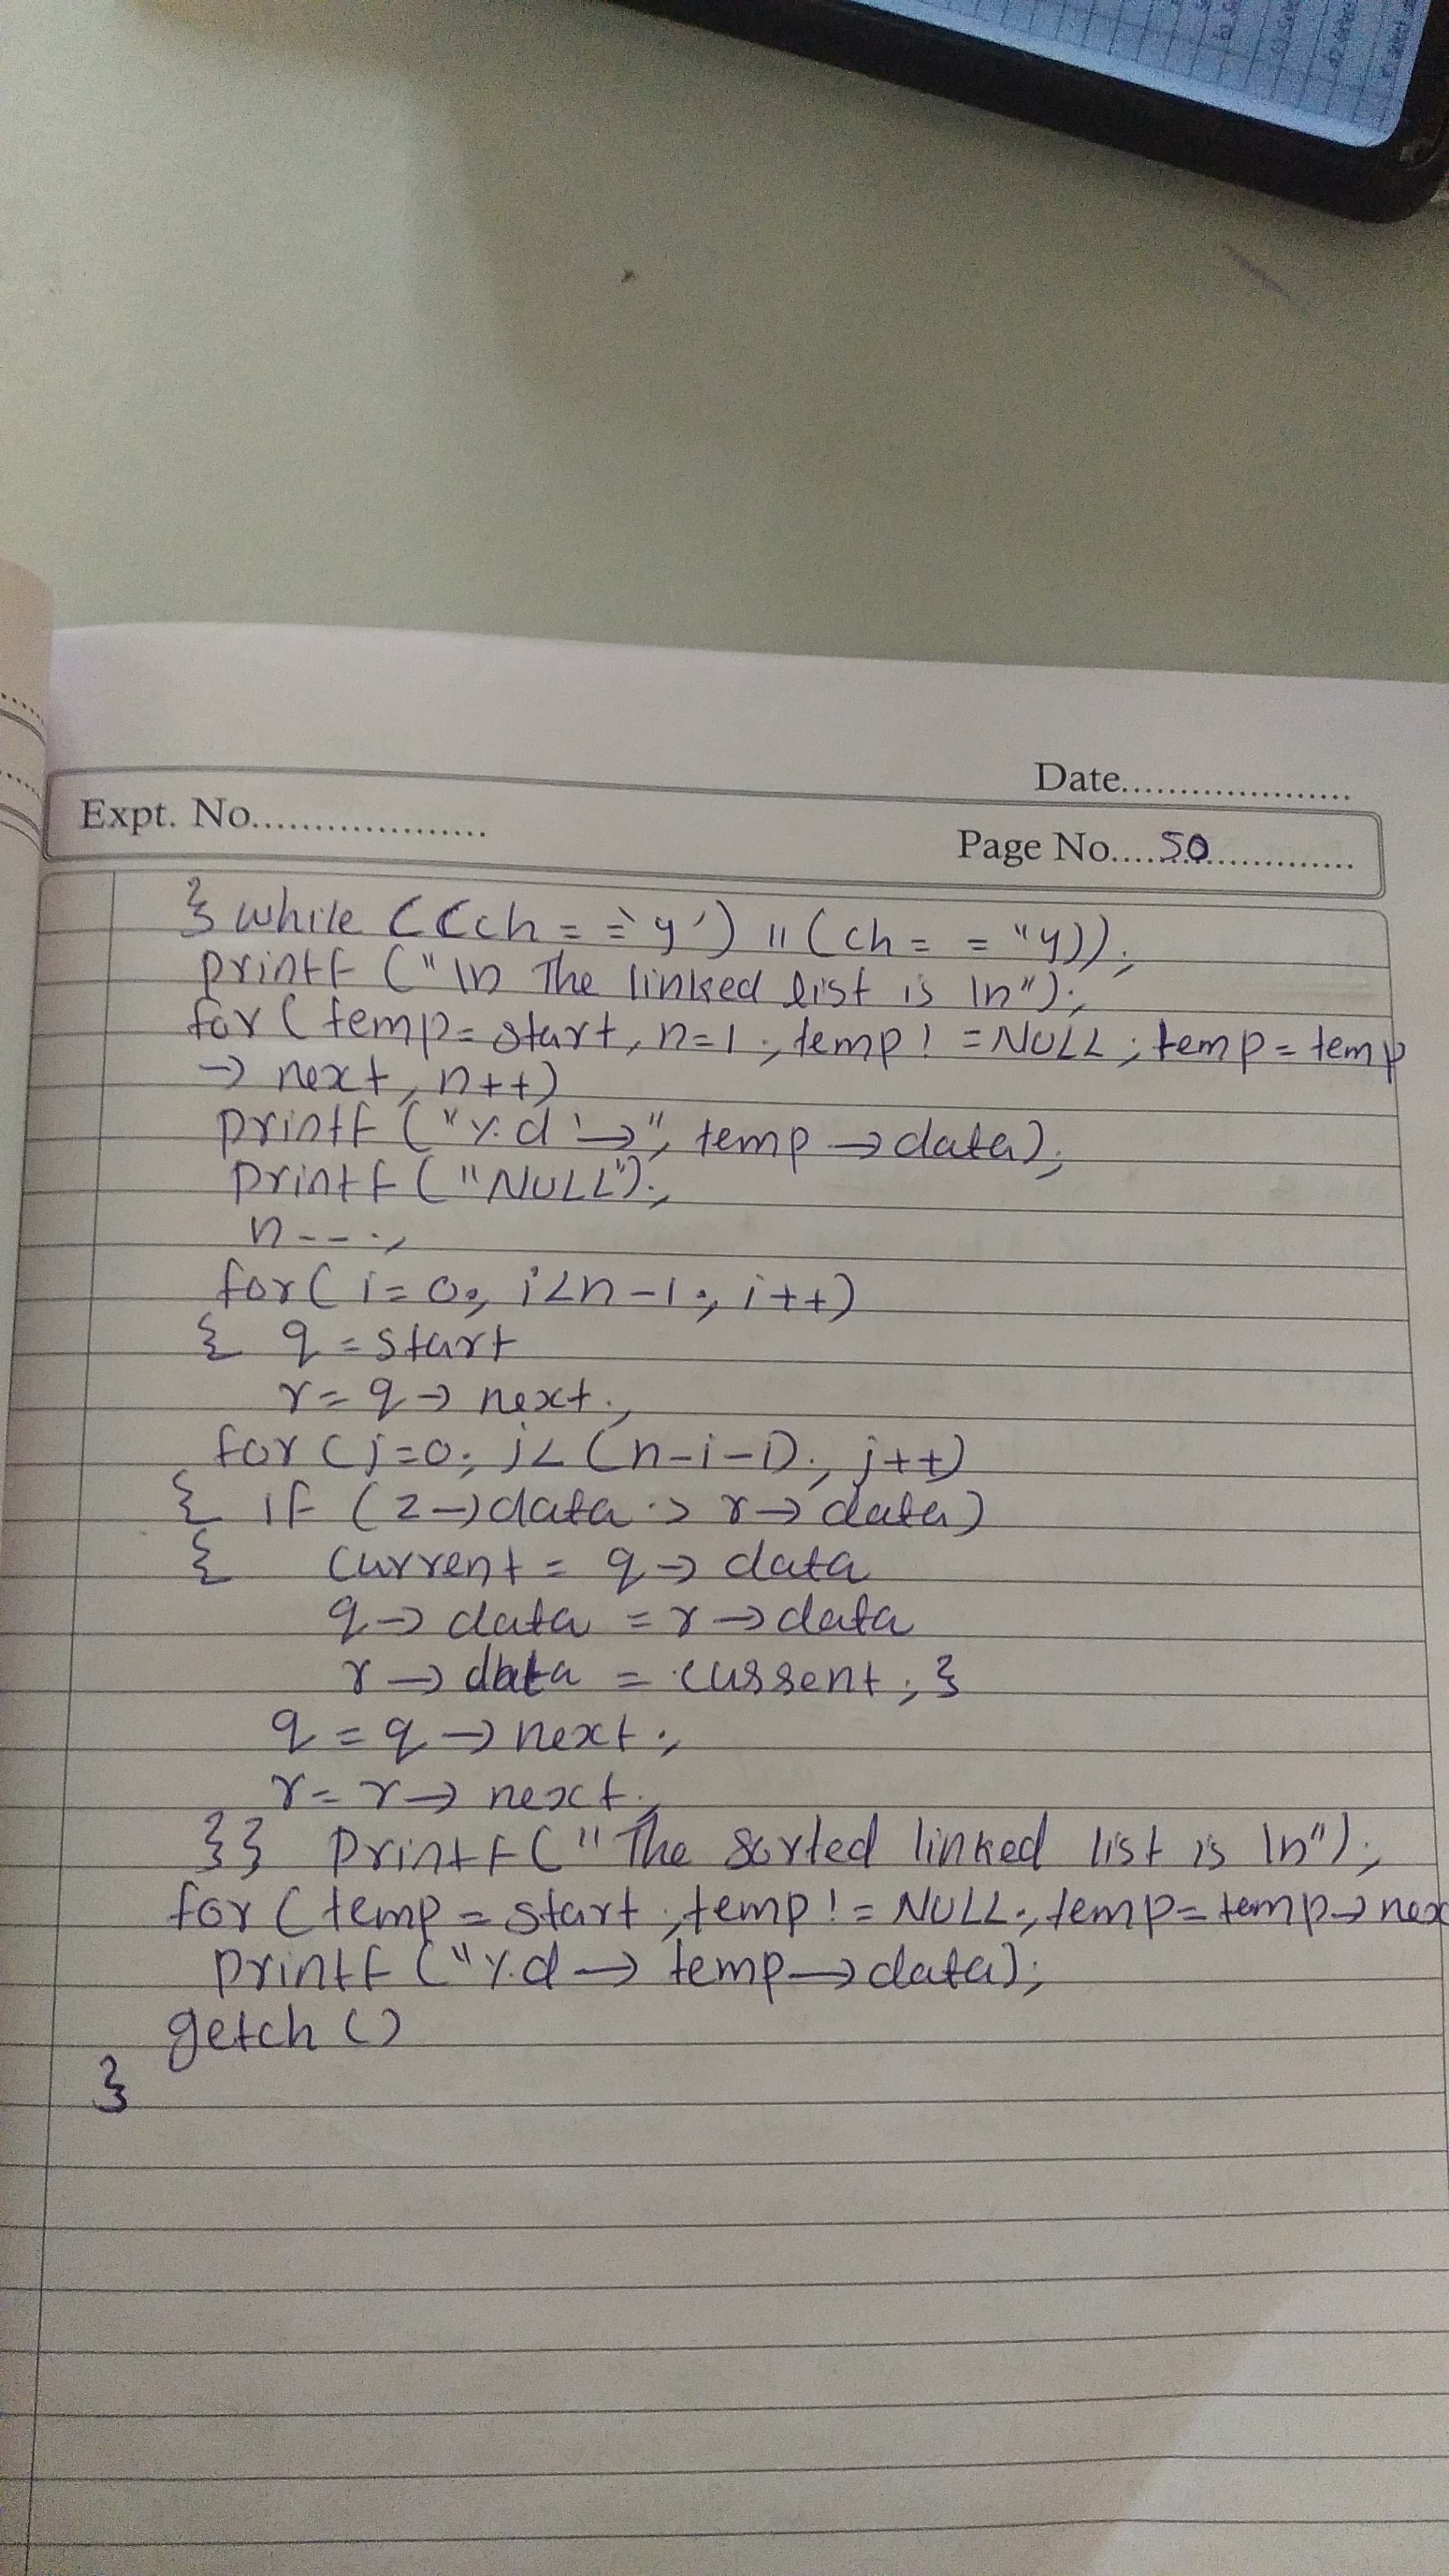 Date....................
Expt. No...................
Page No....50....................
} while ((ch = = 'y') || (ch = = "y));
printf ("\n The linked list is \n");
for ( temp = start, n=1 ; temp ! = NULL ; temp = temp
→ next, n++)
printf ("%d '→", temp → data);
printf ("NULL");
n--;
for ( i = 0; i < n-1; i++)
{ q = start
r = q → next;
for ( j=0; j < (n-i-1); j++)
{ if ( z → data > r → data)
{ current = q → data
q → data = r → data
r → data = current ; }
q = q → next ;
r = r → next;
}} printf ("The sorted linked list is \n");
for ( temp = start ; temp ! = NULL ; temp = temp → nex
printf ("%d → temp → data);
getch ()
}